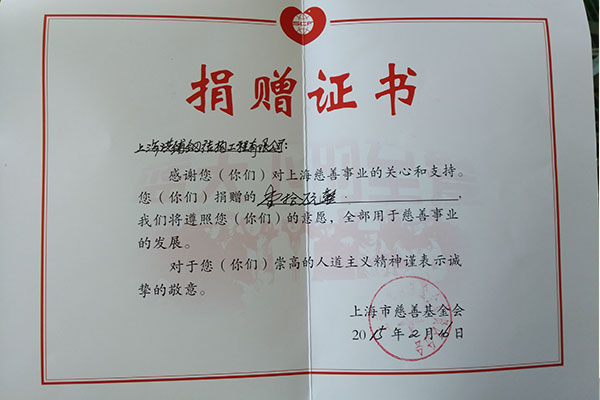 SCF
捐赠证书
上海 钢结构工程有限公司:
感谢您(你们)对上海慈善事业的关心和支持。
您(你们)捐赠的 ,
我们将遵照您(你们)的意愿,全部用于慈善事业
的发展。
对于您(你们)崇高的人道主义精神谨表示诚
挚的敬意。
上海市慈善基金会
2015年2月16日